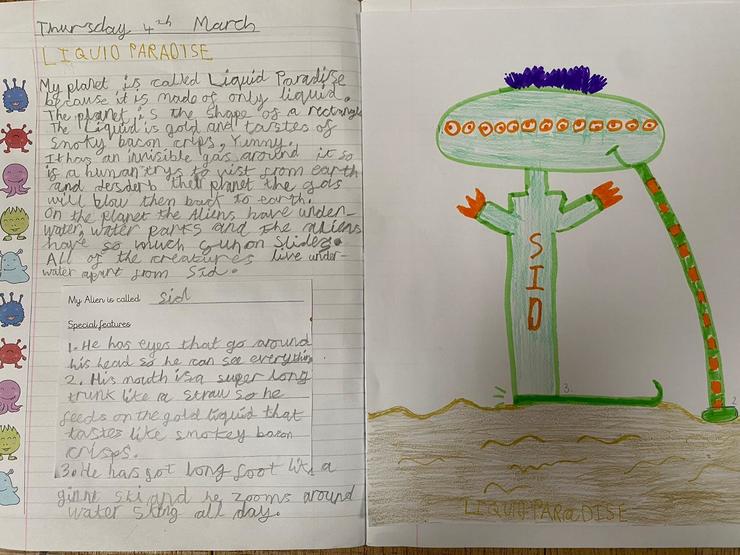 Thursday 4th March
LIQUID PARADISE
My planet is called Liquid Paradise
because it is made of only liquid.
The planet is the shape of a rectangle
The Liquid is gold and tastes of
Smoky bacon crips, Yummy.
It has an invisible gas around it so
is a human trys to vist from earth
and desderb their planet the gas
will blow then back to earth.
On the planet the Aliens have under-
water, water parks and the aliens
have so much fun on Slides.
All of the creatures live under-
water apart from Sid.
My Alien is called sid
Special features
1. He has eyes that go around
his head so he can see everything
2. His mouth is a super long
trunk like a straw so he
feeds on the gold liquid that
tastes like smokey bacon
crisps.
3. He has got long foot like a
giant ski and he zooms around
water skiing all day.
SID
3.
2
LIQUID PARADISE